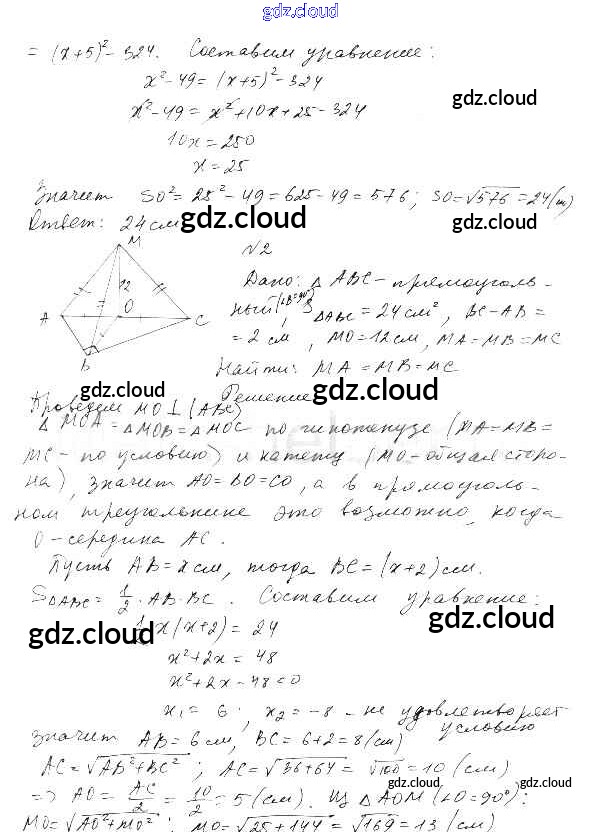 gdz.cloud
= (x+5)² - 324. Составим уравнение:
x² - 49 = (x+5)² - 324
gdz.cloud
x² - 49 = x² + 10x + 25 - 324
10x = 250
gdz.cloud
x = 25
Значит SO² = 25² - 49 = 625 - 49 = 576; SO = √576 = 24 (см)
Ответ: 24 см
gdz.cloud
gdz.cloud
N2
M
12
A
O
C
B
Дано: △ABC - прямоуголь-
ный (∠B=90°), S△ABC = 24 см², BC - AB =
= 2 см, MO = 12 см, MA = MB = MC
Найти: MA = MB = MC
gdz.cloud
gdz.cloud
Решение
Проведем MO ⊥ (ABC)
△MOA = △MOB = △MOC по гипотенузе (MA = MB =
MC - по условию) и катету (MO - общая сторо-
на), значит AO = BO = CO, а в прямоуголь-
ном треугольнике это возможно, когда
O - середина AC.
Пусть AB = x см, тогда BC = (x+2) см.
S△ABC = 1/2 · AB · BC. Составим уравнение:
gdz.cloud
gdz.cloud
1/2 x(x+2) = 24
x² + 2x = 48
x² + 2x - 48 = 0
x₁ = 6; x₂ = -8 - не удовлетворяет
условию
Значит AB = 6 см, BC = 6+2 = 8 (см)
AC = √AB²+BC²; AC = √36+64 = √100 = 10 (см)
gdz.cloud
gdz.cloud
=> AO = AC/2 = 10/2 = 5 (см). Из △AOM (∠O=90°):
MO = √AO²+MO²; MO = √25+144 = √169 = 13 (см)